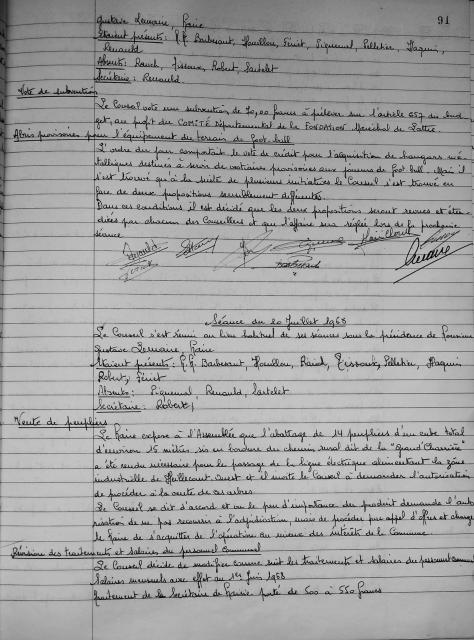 91
Gustave Lemaire, Maire
Etaient présents: R.R. Barbesant, Houillon, Fériet, Piquemel, Pelletier, Haquin,
Renauld
Absents: Rauch, Tissoux, Robert, Sartelet
Secrétaire: Renauld
Vote de subvention
Le Conseil vote une subvention de 70,00 francs à prélever sur l'article 657 du bud
get, au profit du COMITÉ Départemental de la FONDATION Maréchal de Lattre.
Abris provisoires pour l'équipement du terrain de foot-ball
L'ordre du jour comportait le vote de crédit pour l'acquisition de hangars mé-
talliques destinés à servir de vestiaires provisoires aux joueurs de foot-ball. Mais il
s'est trouvé qu'à la suite de plusieurs initiatives le Conseil s'est trouvé en
face de deux propositions sensiblement différentes.
Dans ces conditions il est décidé que les deux propositions seront revues et étu
diées par chacun des Conseillers et que l'affaire sera réglée lors de la prochaine
séance
Renauld
Séance du 20 Juillet 1968
Le Conseil s'est réuni au lieu habituel de ses séances sous la présidence de Monsieur
Gustave Lemaire, Maire
Etaient présents: R.R. Barbesant, Houillon, Tissoux, Pelletier, Haquin
Robert, Fériet
Absents: Piquemel, Renauld, Sartelet
Secrétaire: Robert
Vente de peupliers
Le Maire expose à l'Assemblée que l'abattage de 14 peupliers d'un cube total
d'environ 15 mètres, sis en bordure du chemin rural dit de la "Grand'Charrière"
a été rendu nécessaire pour le passage de la ligne électrique alimentant la zône
industrielle de Ouest et il invite le Conseil à demander l'autorisation
de procéder à la vente de ces arbres.
Le Conseil se dit d'accord et vu le peu d'importance du produit demande l'auto
risation de ne pas recourir à l'adjudication, mais de procéder par appel d'offres et charge
le Maire de s'acquitter de l'opération au mieux des intérêts de la Commune.
Révision des traitements et salaires du personnel communal
Le Conseil décide de modifier comme suit les traitements et salaires du personnel communal
Salaires mensuels avec effet au 1er Juin 1968
Traitement de la Secrétaire de Mairie porté de 500 à 550 francs